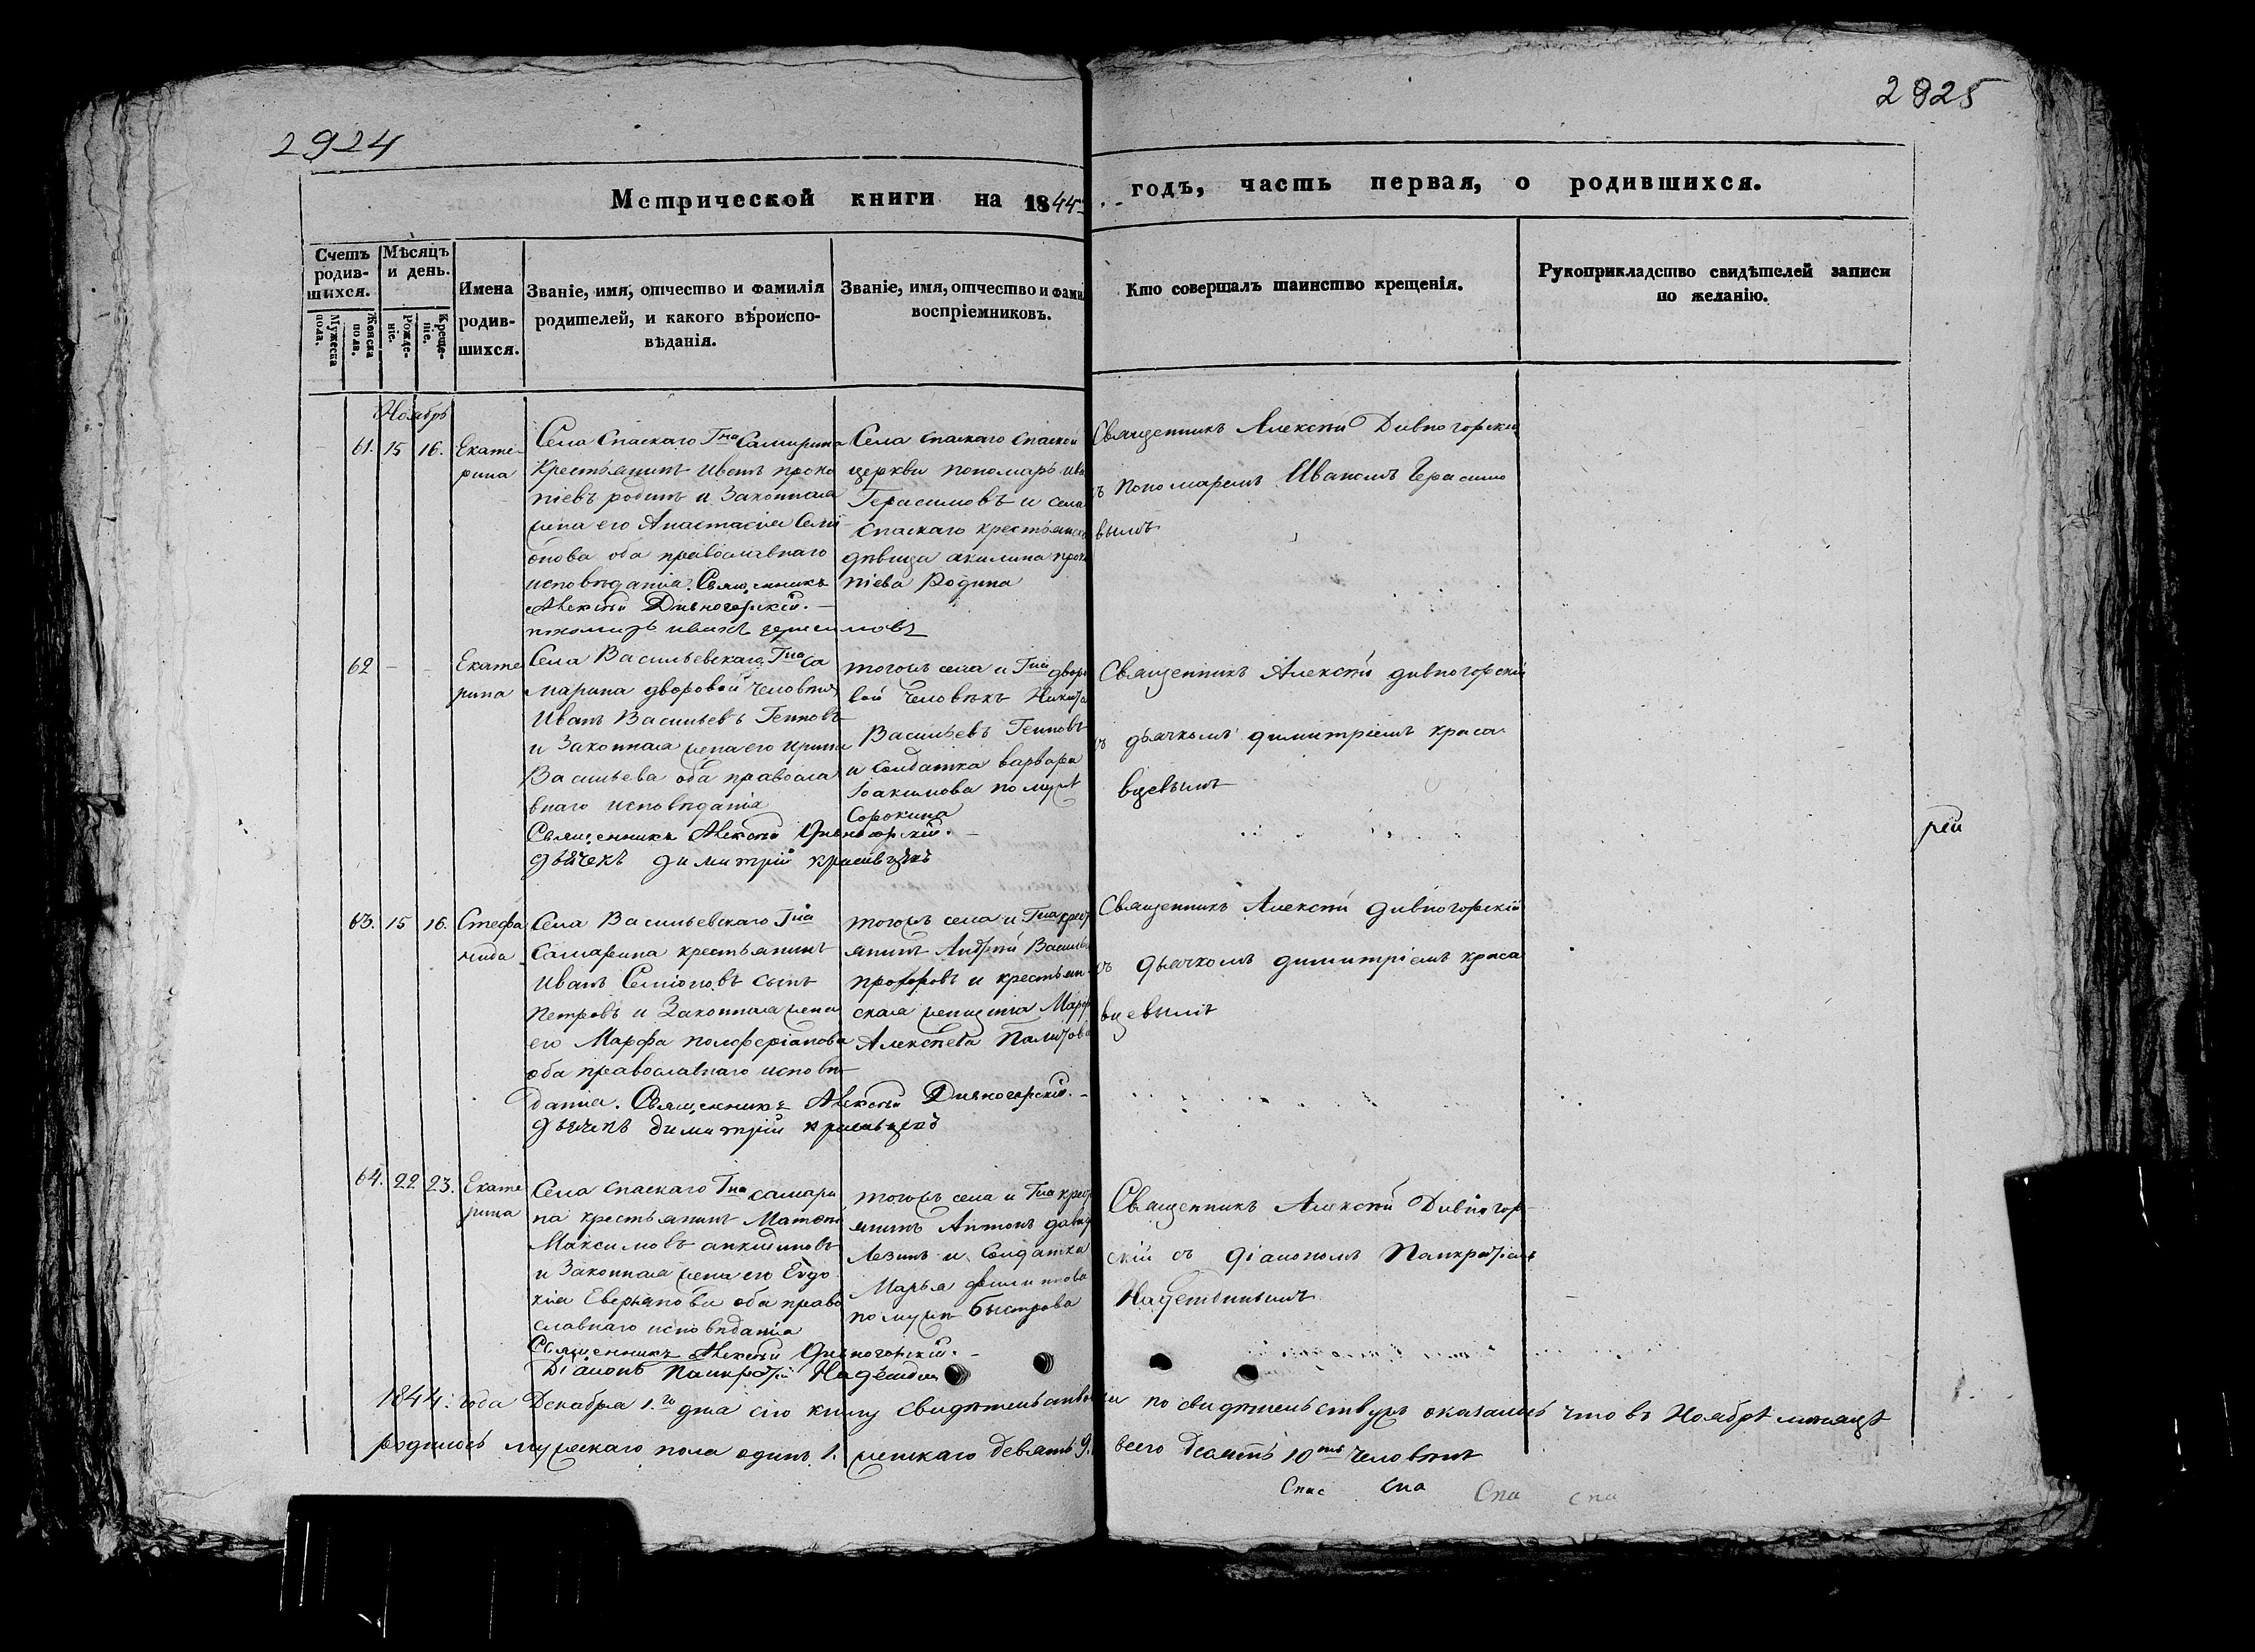 2924
2925
Метрической книги на 1844 годъ, часть первая, о родившихся.
Счетъ родив-шихся.
Мужеска пола.
Женска пола.
Мѣсяцъ и день.
Рожде-ніе.
Креще-ніе.
Имена родив-шихся.
Званіе, имя, отчество и фамилія
родителей, и какого вѣроиспо-
вѣданія.
Званіе, имя, отчество и фами
воспріемниковъ.
Кто совершалъ таинство крещенія.
Рукоприкладство свидѣтелей записи
по желанію.
Ноябрь
61. 15 16. Екате-
рина
Села Спаскаго Гна Самарина
Крестьянинъ Иванъ проко
піевъ родинъ и Законная
жена его Анастасія Семі
онова оба православнаго
исповѣданія. Священникъ
Алексѣй Дивногорскій.
пономарь иванъ герасимовъ
Села спаскаго спаской
церкви пономарь ива
Герасимовъ и села
Спаскаго крестьянск
дѣвица акилина прок
піева Родина
Священникъ Алексѣй Дивногорскій
ъ пономаремъ Иваномъ Герасимо
вымъ
62 - - Екате
рина
Села Васильевскаго Гна Са
марина дворовой человѣкъ
Иванъ Васильевъ
и Законная жена его Ирина
Васильева оба правосла
внаго исповѣданія
Священникъ Алексѣй Дивногорскій.
дьячекъ димитрій красавцевъ
тогожъ села и Гна дворо
вой человѣкъ Никита
Васильевъ
и Солдатка варвара
Іоакимова по мужѣ
Сорокина
Священникъ Алексѣй дивногорскій
ъ дьячкомъ димитріемъ краса
вцевымъ
рій
63. 15 16. Стефа
нида
Села Васильевскаго Гна
Самарина крестьянинъ
Иванъ Семіоновъ сынъ
Петровъ и Законная жена
его Марфа
оба православнаго исповѣ
данія. Священникъ Алексѣй Дивногорскій.
дьячекъ димитрій красавцевъ
тогожъ села и Гна крест
янинъ Андрей Василье
и крестьян
ская женщина Марф
Алексѣева
Священникъ Алексѣй дивногорскій
съ дьячкомъ димитріемъ краса
вцевымъ
64. 22 23. Екате
рина
Села спаскаго Гна самари
на крестьянинъ
Максимовъ
и Законная жена его Евдо
кія оба право
славнаго исповѣданія
Священникъ Алексѣй Дивногорскій.
Діаконъ Панкратій Надеждин
тогожъ села и Гна крест
янинъ Антонъ давид
и Солдатка
Марья филиппова
по мужѣ Быстрова
Священникъ Алексѣй Дивногор
скій съ діакономъ Панкратіемъ
Надеждинымъ
1844: года Декабря 1.го дня сію книгу свидѣтельствовали по свидѣтельству оказалось что въ Ноябрѣ мѣсяцѣ
родилось мужескаго пола одинъ 1. женскаго девять 9. всего десять 10ть человѣкъ
Спас Спа Спа спа